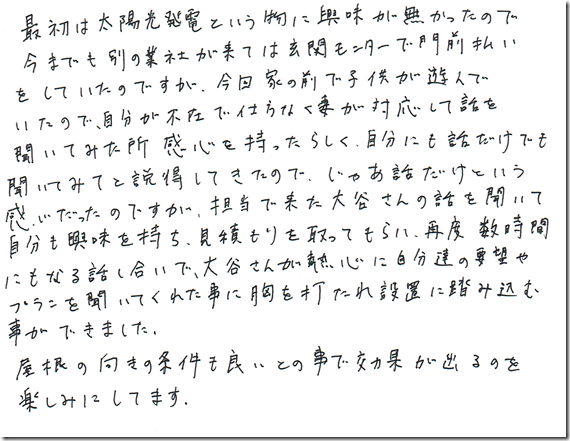 最初は太陽光発電という物に興味が無かったので
今までも別の業社が来ては玄関モニターで門前払い
をしていたのですが、今回家の前で子供が遊んで
いたので、自分が不在で仕方なく妻が対応して話を
聞いてみた所 感心を持ったらしく、自分にも話だけでも
聞いてみてと説得してきたので、じゃあ話だけという
感じだったのですが、担当で来た大谷さんの話を聞いて
自分も興味を持ち、見積もりを取ってもらい、再度 数時間
にもなる話し合いで、大谷さんが熱心に自分達の要望や
プランを聞いてくれた事に胸を打たれ設置に踏み込む
事ができました。
屋根の向きの条件も良いとの事で効果が出るのを
楽しみにしてます。